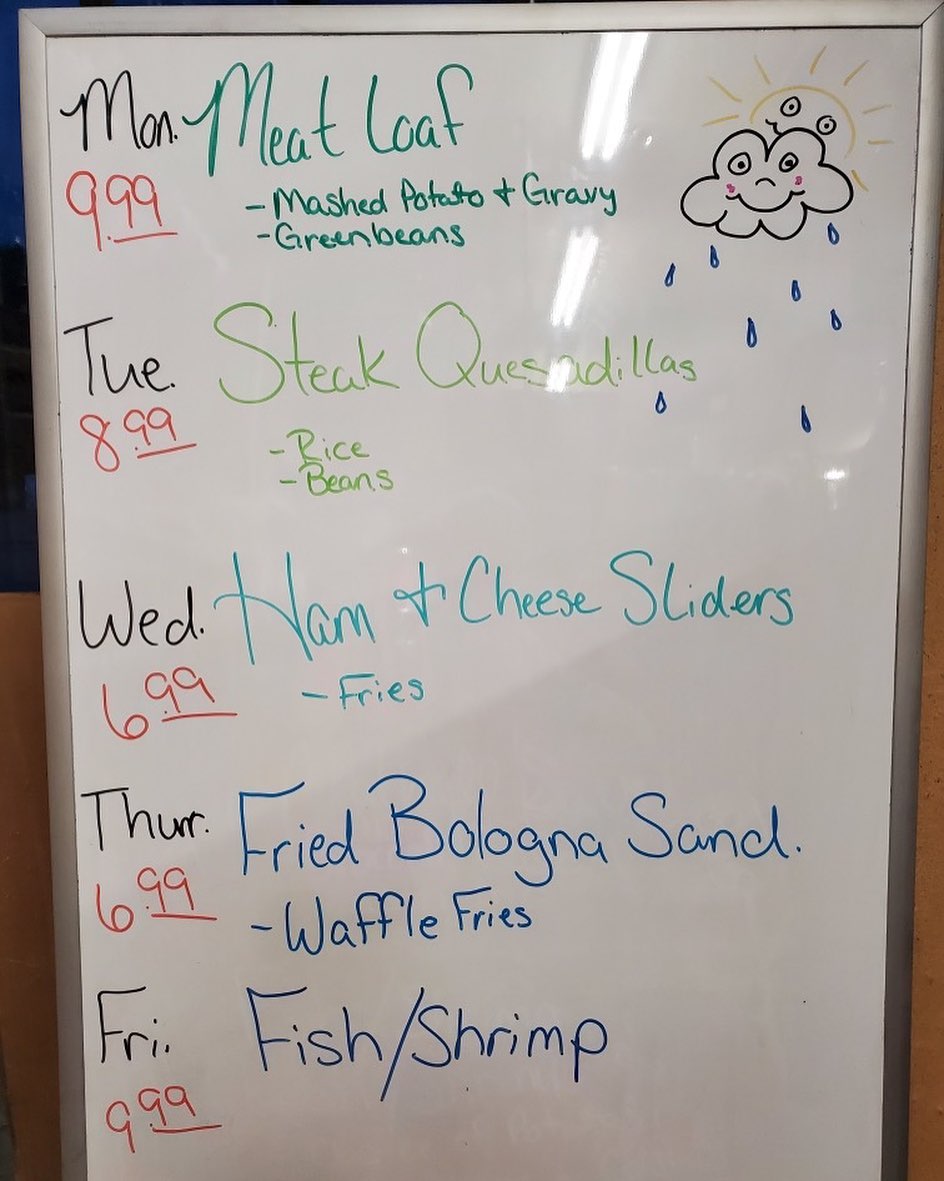 Mon. Meat Loaf
9.99
- Mashed Potato + Gravy
- Greenbeans
Tue. Steak Quesadillas
8.99
- Rice
- Beans
Wed. Ham + Cheese Sliders
6.99
- Fries
Thurr. Fried Bologna Sand.
6.99
- Waffle Fries
Fri. Fish/Shrimp
9.99